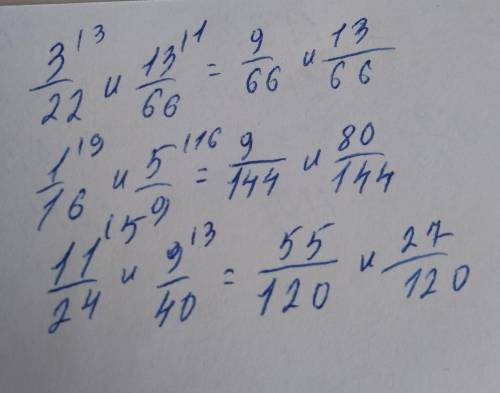 3/22 ^(\3) и 13/66 ^(\1) = 9/66 и 13/66
1/16 ^(\9) и 5/9 ^(\16) = 9/144 и 80/144
11/24 ^(\5) и 9/40 ^(\3) = 55/120 и 27/120